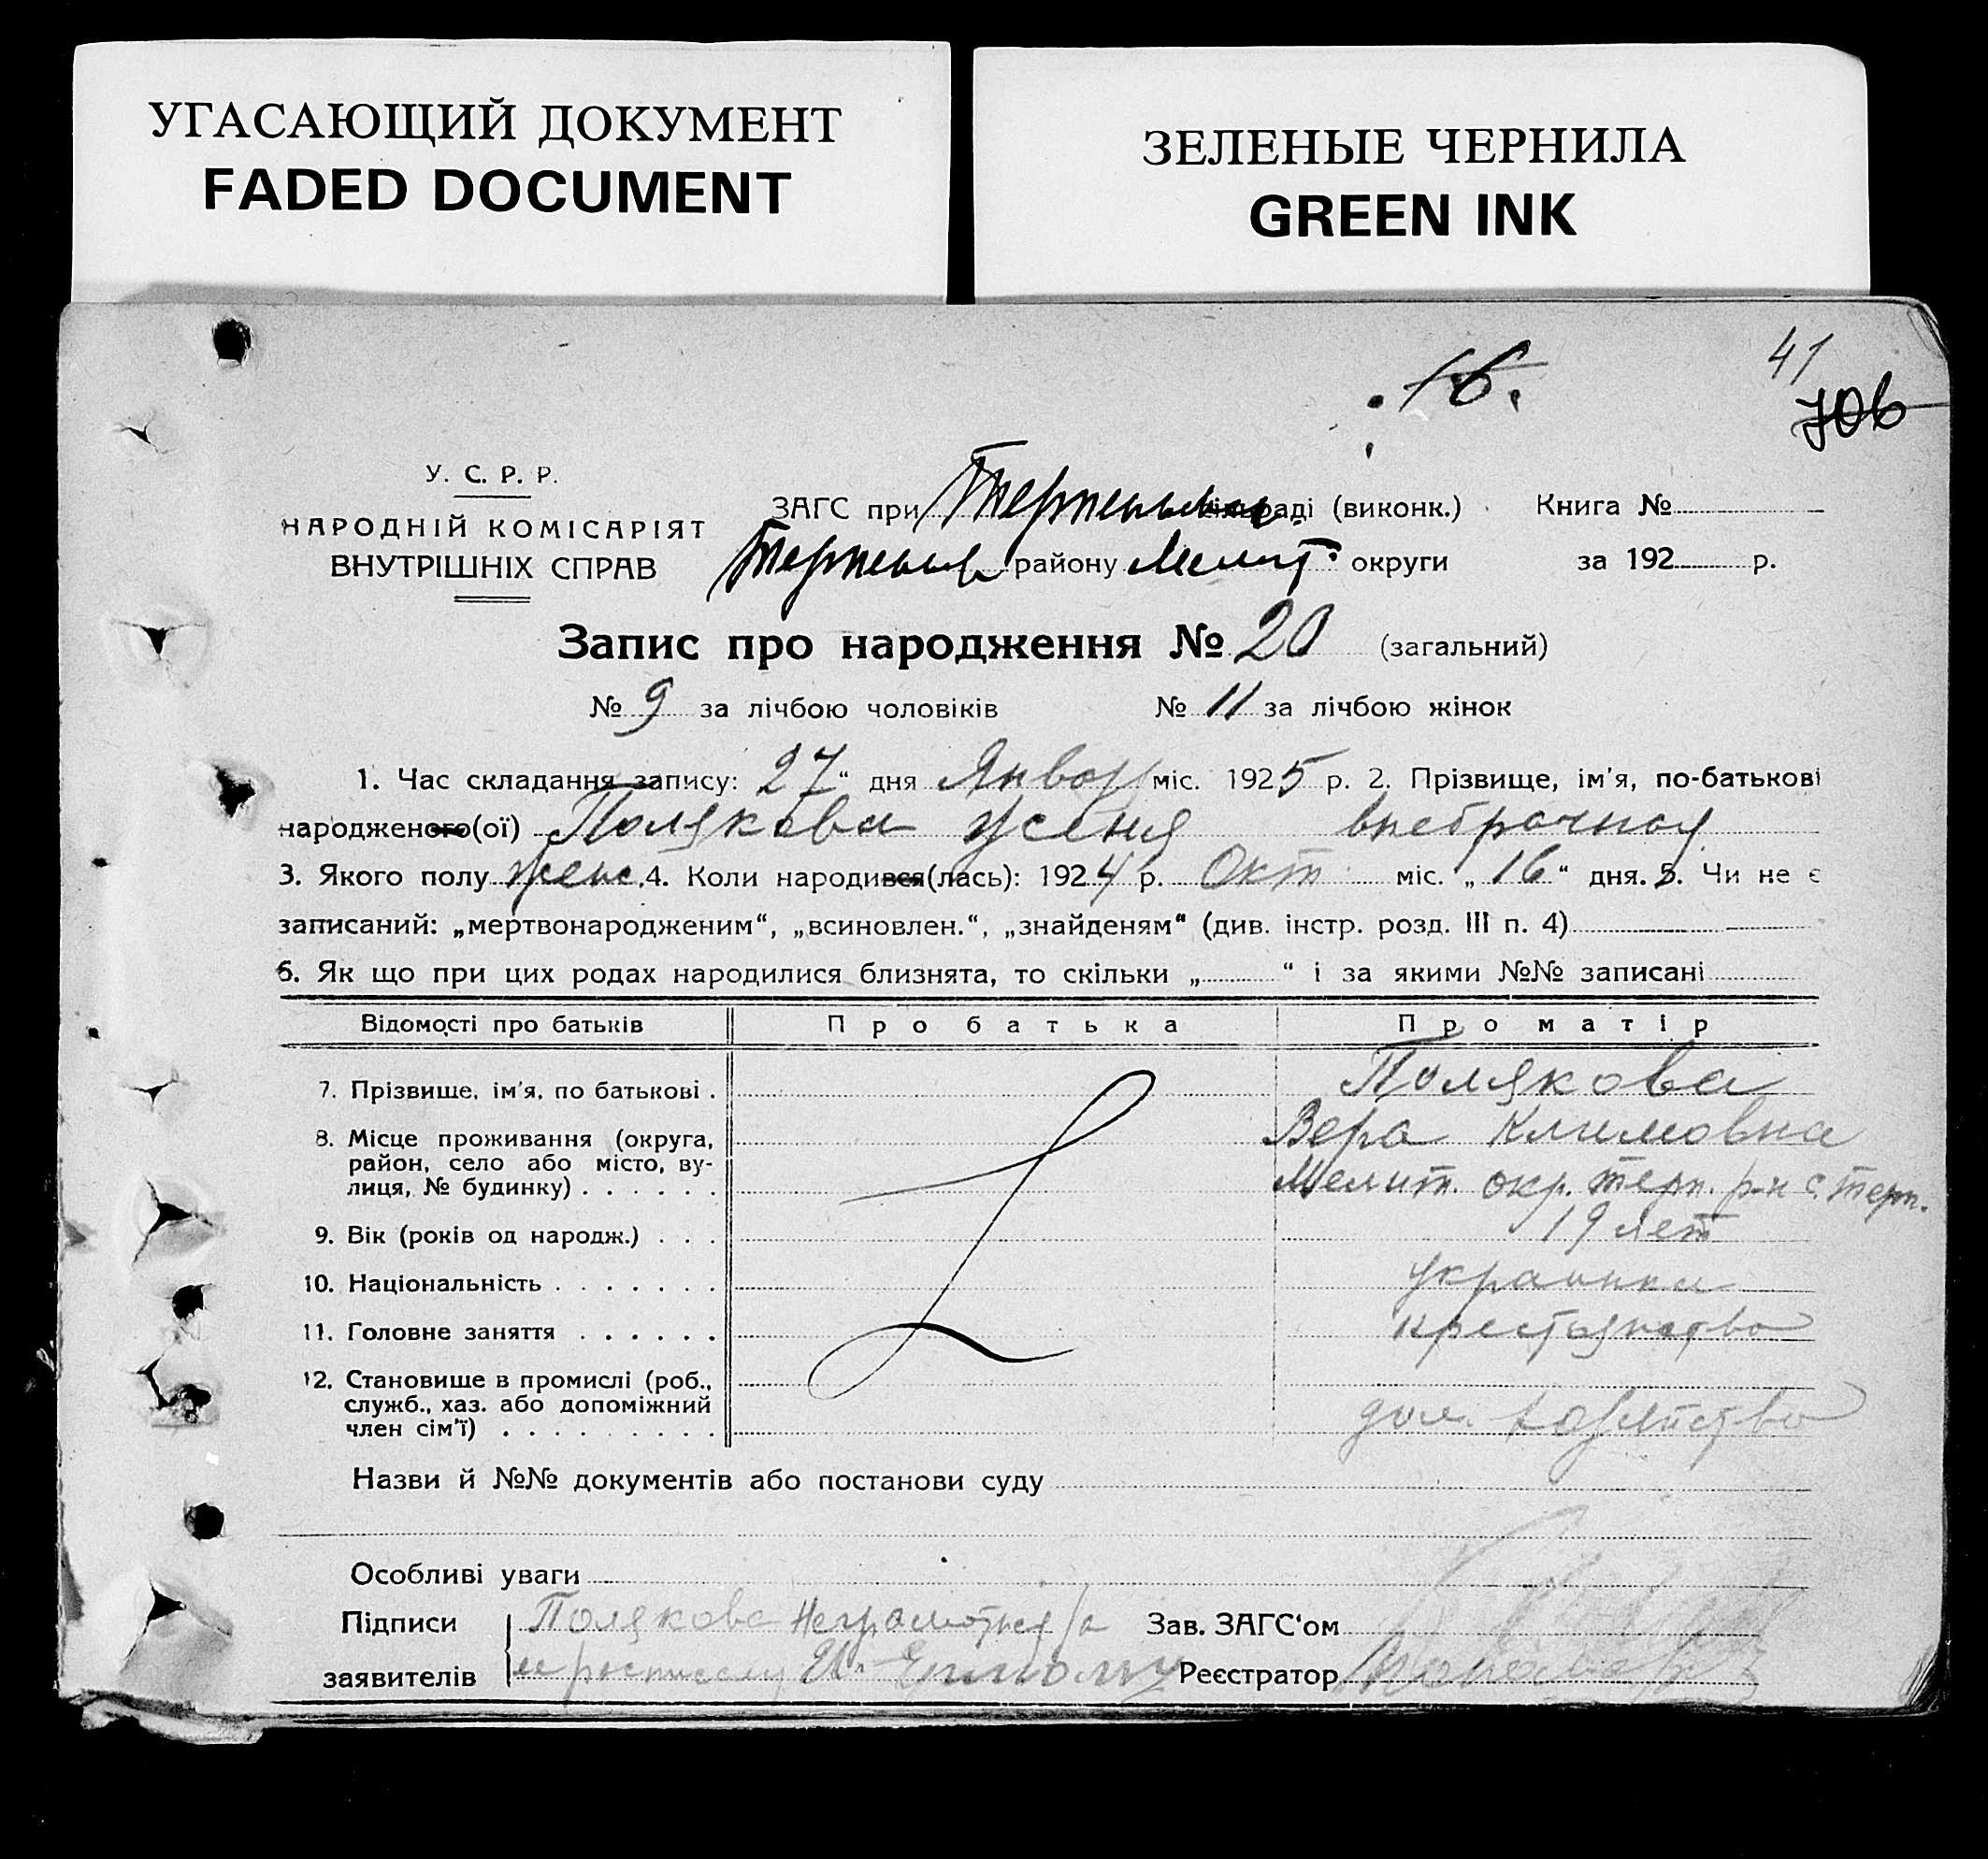 УГАСАЮЩИЙ ДОКУМЕНТ
FADED DOCUMENT
ЗЕЛЕНЫЕ ЧЕРНИЛА
GREEN INK
16.
41
706
У. С. Р. Р.
НАРОДНІЙ КОМІСАРІЯТ
ВНУТРІШНІХ СПРАВ
ЗАГС при (виконк.) Книга №
району Мелит. округи за 192 р.
Запис про народження № 20 (загальний)
№ 9 за лічбою чоловіків № 11 за лічбою жінок
1. Час складання запису: 27“ дня Январ міс. 1925 р. 2. Прізвище, ім’я, по-батькові
народженого(ої) Полякова Женя внебрачная
3. Якого полу женс. 4. Коли народився(лась): 1924 р. Окт міс. „16“ дня. 5. Чи не є
записаний: „мертвонародженим“, „всиновлен.“, „знайденям“ (див. інстр. розд. III п. 4)
6. Як що при цих родах народилися близнята, то скільки „ “ і за якими №№ записані
Відомості про батьків Про батька Про матір
7. Прізвище, ім’я, по батькові . Полякова
8. Місце проживання (округа, Вера Климовна
район, село або місто, ву-
лиця, № будинку) . . . . . . Мелит. окр. терп. р-н с. терп.
9. Вік (років од народж.) . . . 19 лет
10. Національність . . . . . . . украинка
11. Головне заняття . . . . . . крестьянство
12. Становище в промислі (роб.,
служб., хаз. або допоміжний
член сім’ї) . . . . . . . . . дом. хозяйство
Назви й №№ документів або постанови суду
Особливі уваги
Підписи Полякова Неграмотная Зав. ЗАГС‘ом
заявителів Реєстратор